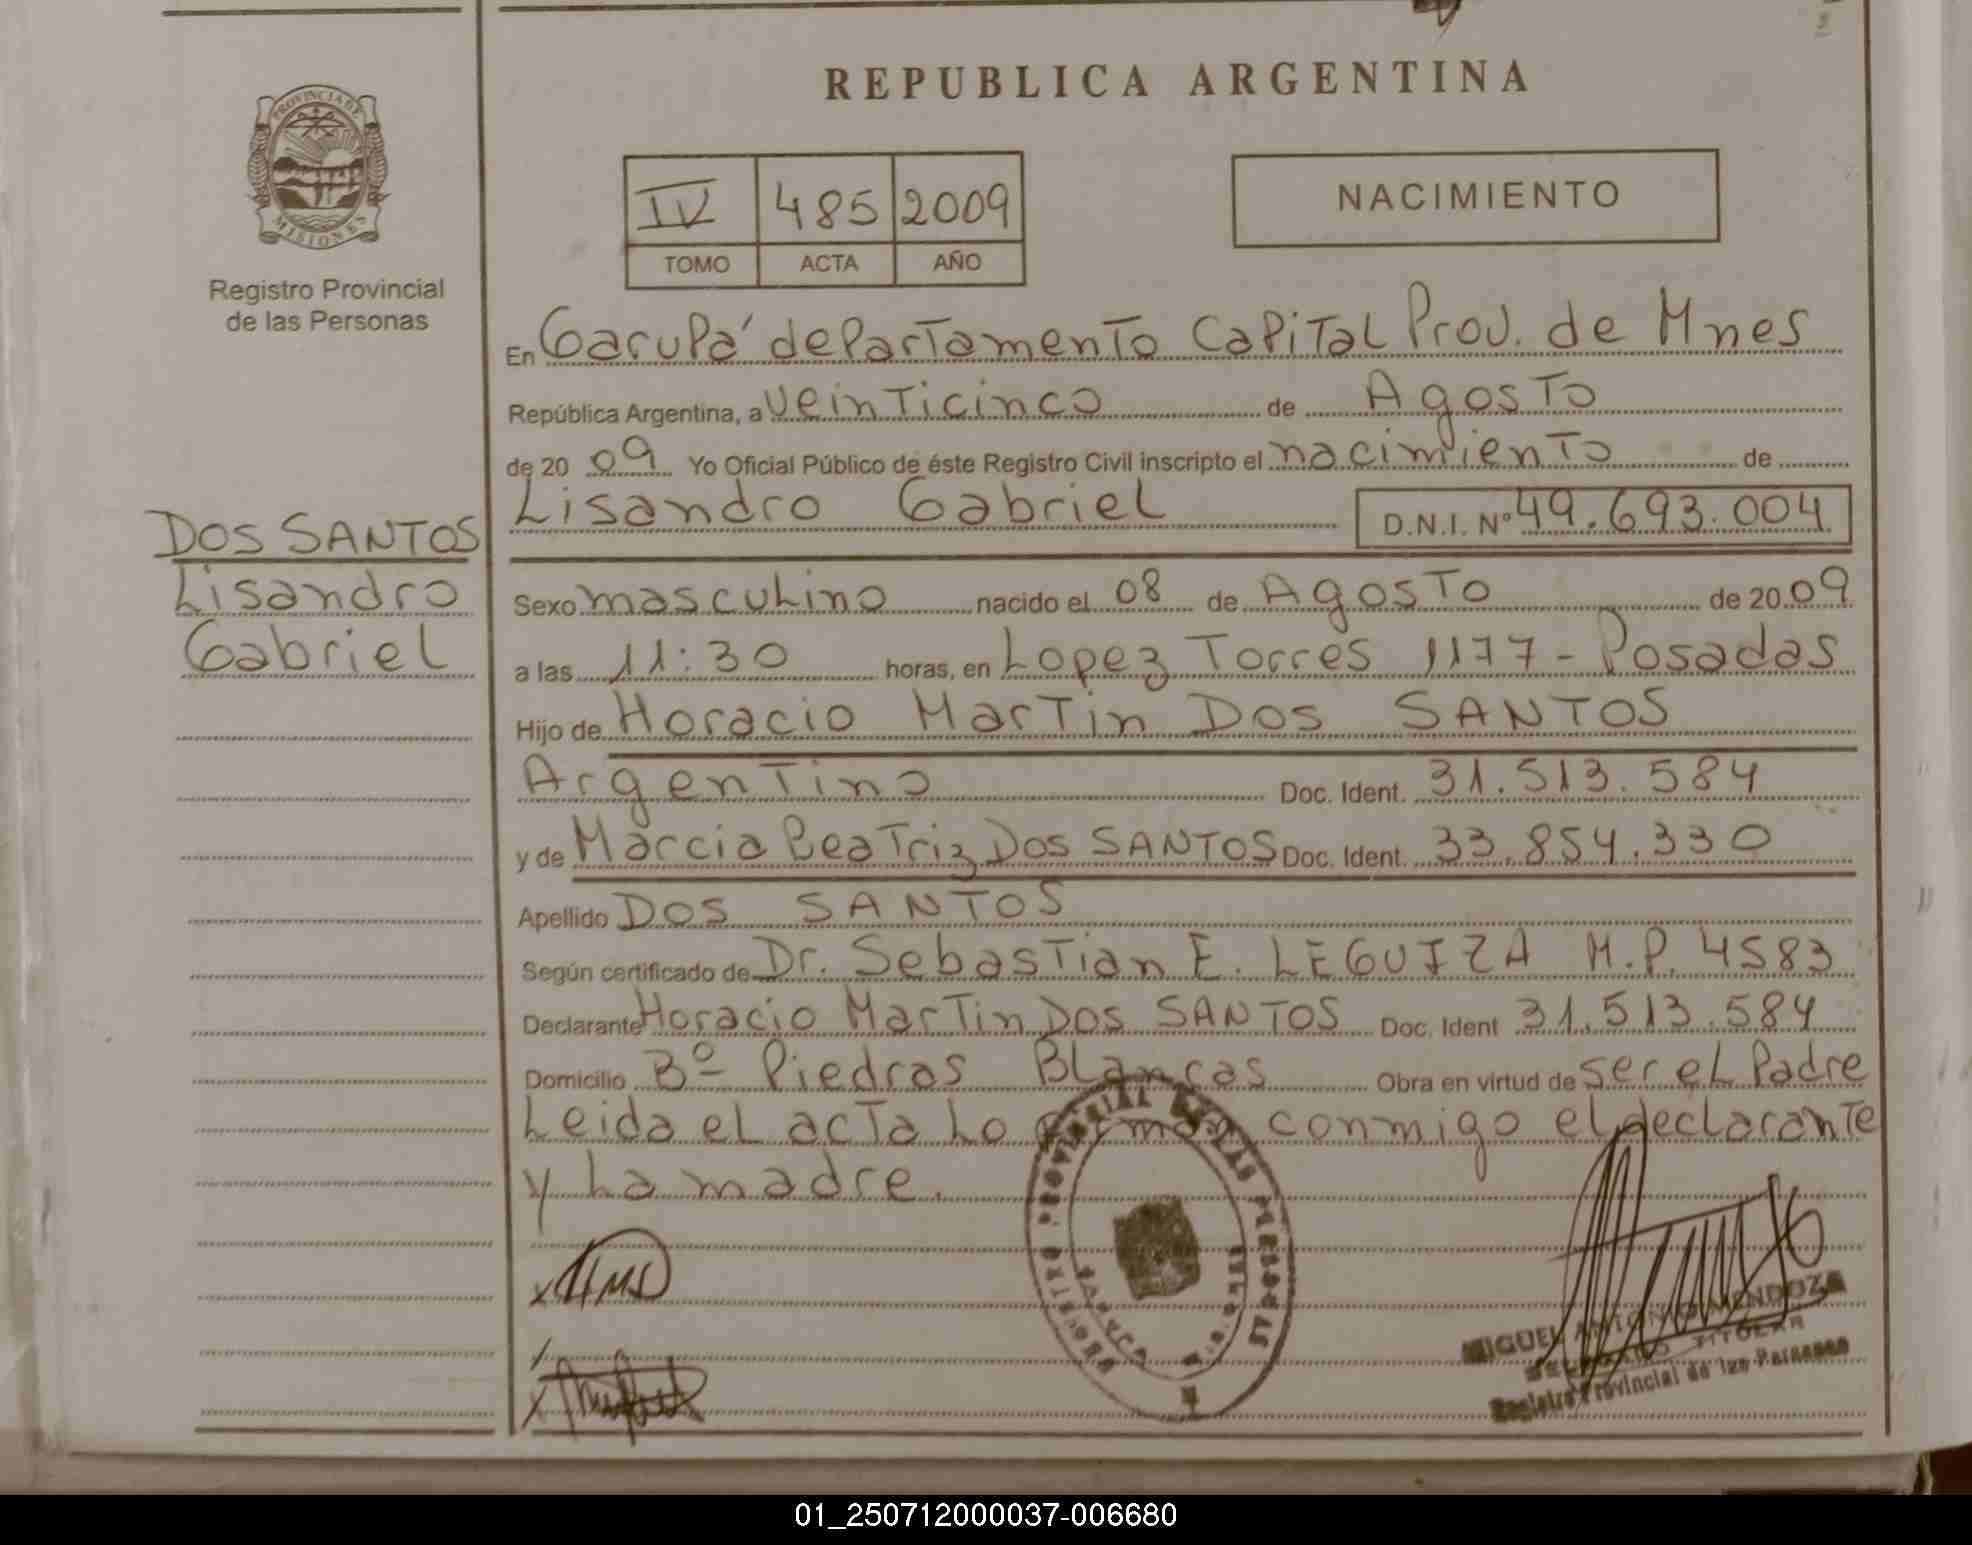 REPUBLICA ARGENTINA
PROVINCIA DE
MISIONES
Registro Provincial
de las Personas
IV 485 2009
TOMO ACTA AÑO
NACIMIENTO
En Garupá departamento Capital Prov. de Mnes
República Argentina, a veinticinco de Agosto
de 20 09 Yo Oficial Público de éste Registro Civil inscripto el nacimiento de
Lisandro Gabriel D.N.I. Nº 49.693.004
DOS SANTOS
Lisandro
Gabriel
Sexo masculino nacido el 08 de Agosto de 20 09
a las 11:30 horas, en Lopez Torres 1177 - Posadas
Hijo de Horacio Martin Dos SANTOS
Argentino Doc. Ident. 31.513.584
y de Marcia Beatriz Dos SANTOS Doc. Ident. 33.854.330
Apellido DOS SANTOS
Según certificado de Dr. Sebastian E. LEGUIZA M.P. 4583
Declarante Horacio Martin Dos SANTOS Doc. Ident 31.513.584
Domicilio Bº Piedras Blancas Obra en virtud de ser el Padre
Leida el acta lo firman conmigo el declarante
y la madre.
REGISTRO PROVINCIAL DE LAS PERSONAS
MIGUEL ANTONIO MENDOZA
TITULAR
Registro Provincial de las Personas
01_250712000037-006680